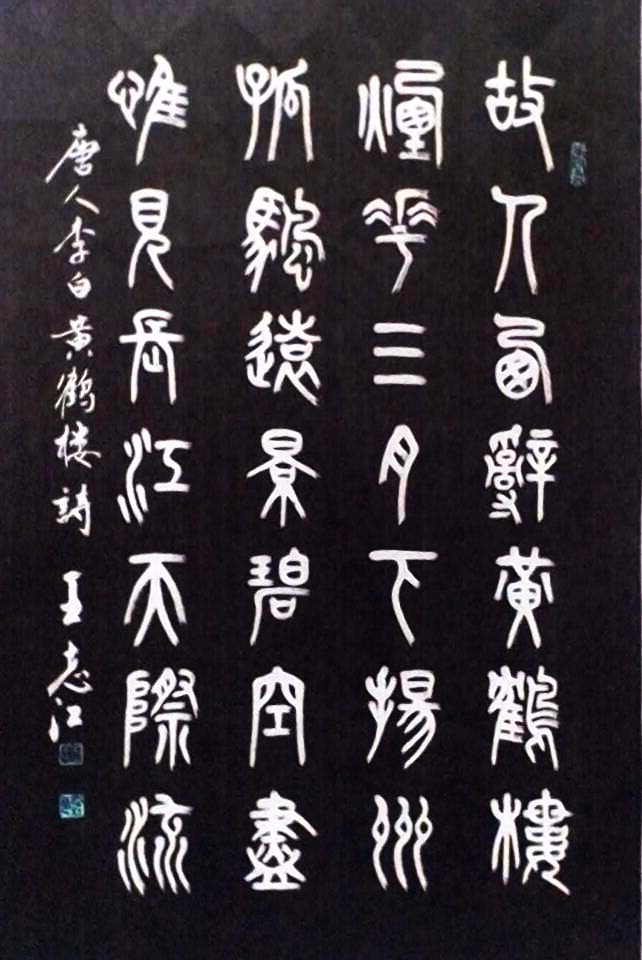 故人西辭黃鶴樓
煙花三月下揚州
孤颿遠景碧空盡
惟見長江天際流
唐人李白黄鶴楼詩 王志江